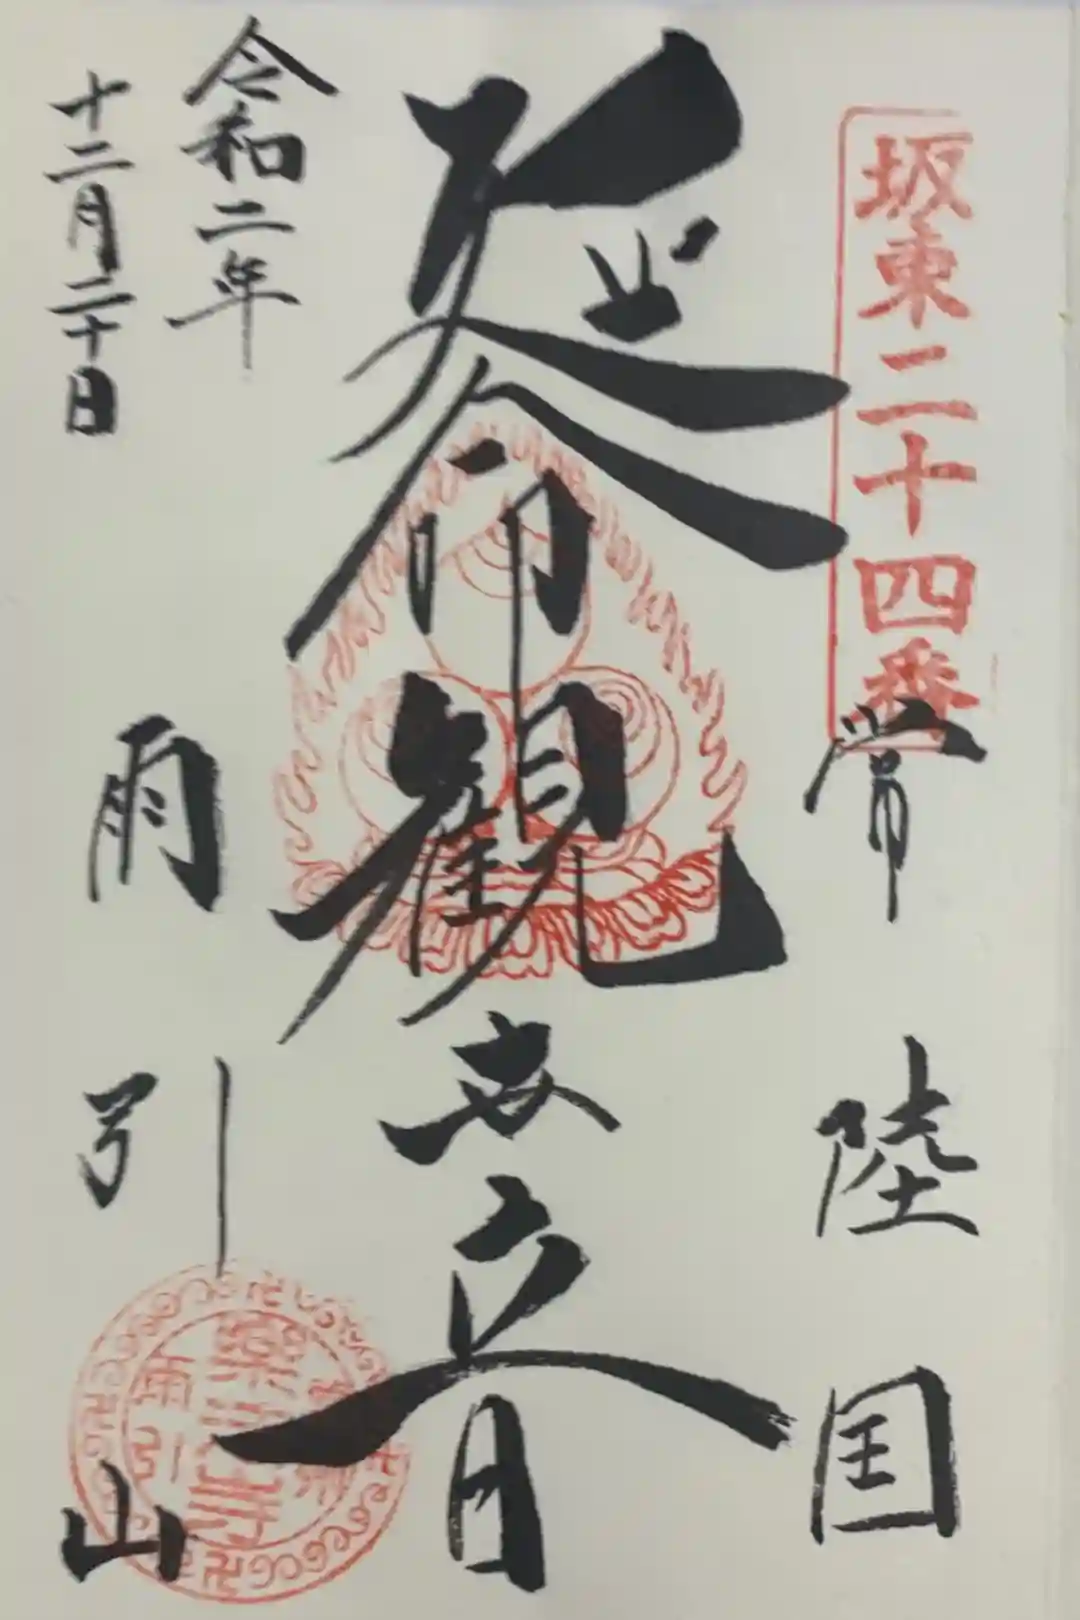 坂東二十四番
常陸国
延命観世音
雨引山
令和二年
十二月二十日
楽法寺
雨引